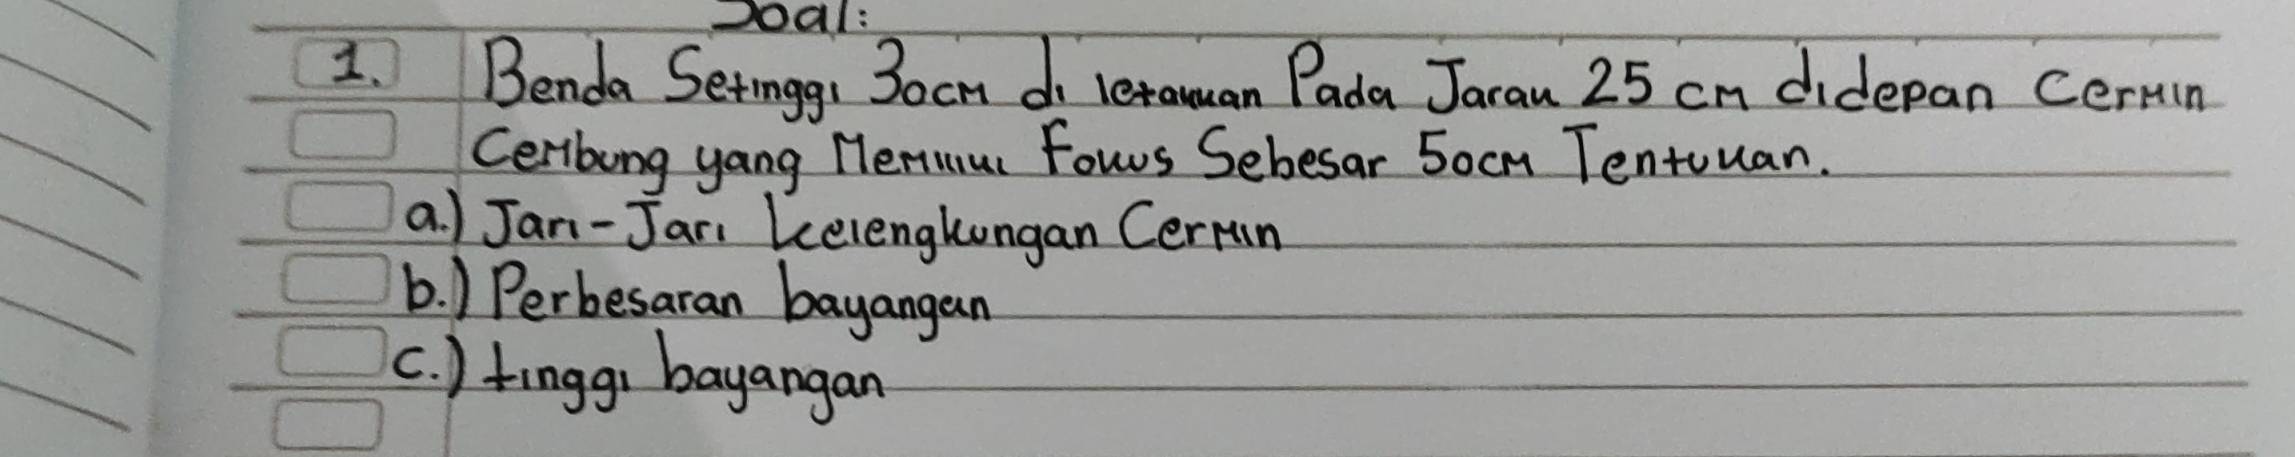 Soal:
1. Benda Setinggi 30cm di letakkan Pada Jarak 25 cm didepan Cermin
Cembung yang Memiliki Fokus Sebesar 50cm Tentukan.
a.) Jari-Jari kelengkungan Cermin
b.) Perbesaran bayangan
c.) tinggi bayangan